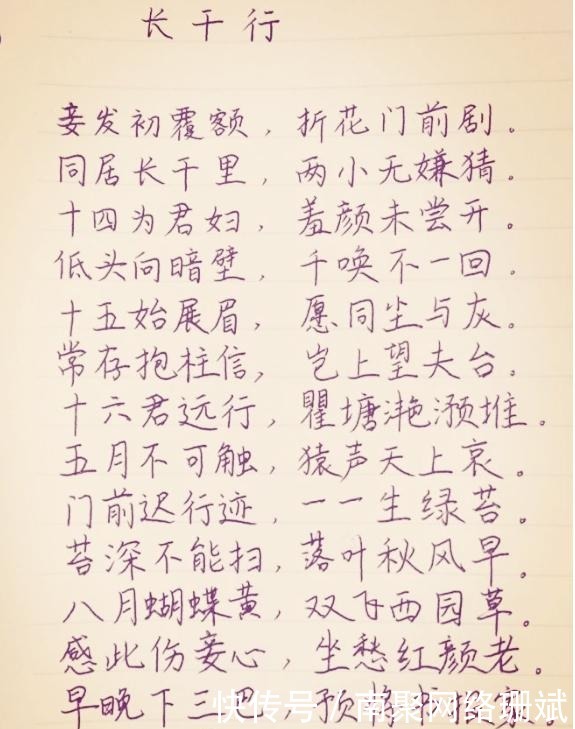 长干行
妾发初覆额，折花门前剧。
同居长干里，两小无嫌猜。
十四为君妇，羞颜未尝开。
低头向暗壁，千唤不一回。
十五始展眉，愿同尘与灰。
常存抱柱信，岂上望夫台。
十六君远行，瞿塘滟滪堆。
五月不可触，猿声天上哀。
门前迟行迹，一一生绿苔。
苔深不能扫，落叶秋风早。
八月蝴蝶黄，双飞西园草。
感此伤妾心，坐愁红颜老。
早晚下三，预
快传号/南聚网络珊斌